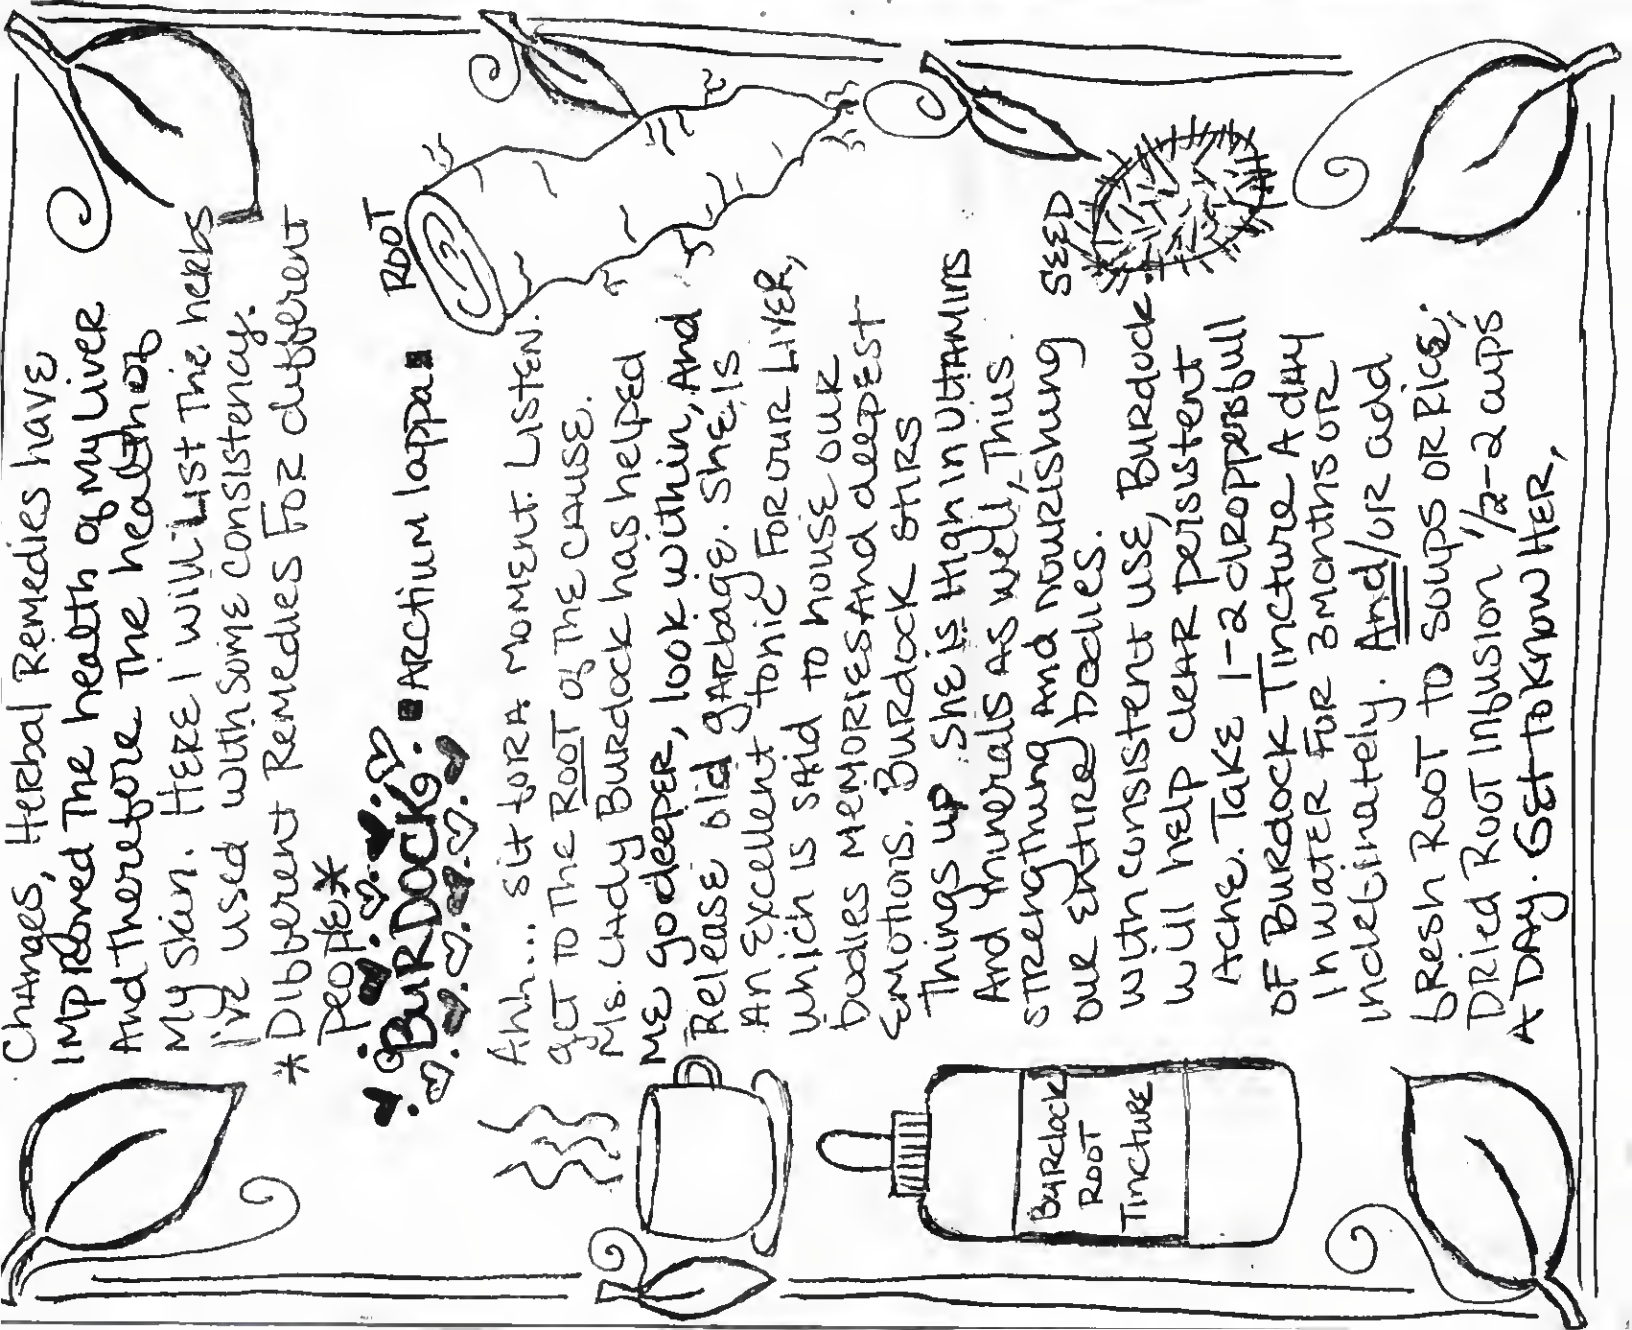 Changes, Herbal Remedies have
improved the health of my liver
And therefore the health of
my skin. Here I will list the herbs
I've used with some consistency.
* Different Remedies for different
people *
ROOT
BURDOCK
Arctium lappa
Ahh... sit for a moment. Listen.
get to the Root of the cause.
Ms. Lady Burdock has helped
me go deeper, look within, And
Release old garbage. She is
An excellent tonic for our liver,
which is said to house our
bodies memories and deepest
emotions. Burdock stirs
things up. She is high in vitamins
And minerals as well, thus
strengthening and nourishing
our entire bodies.
SEED
with consistent use, Burdock
will help clear persistent
Acne. Take 1-2 droppersfull
of Burdock Tincture A day
in water for 3 months or
indefinately. And/or add
fresh Root to soups or rice;
Dried Root infusion 1/2-2 cups
A day. Get to know Her,
Burdock
Root
Tincture